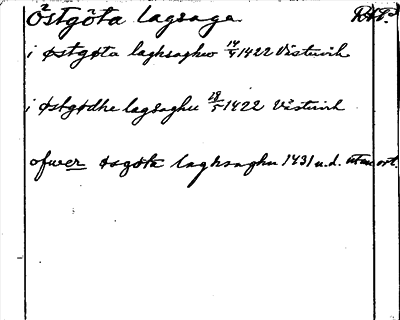 Östgöta lagsaga
i østgøta laghsaghw 14/4 1422 Västervik
i østgødhe lagsaghu 28/5 1422 Västervik
ofwer øsgøta laghsaghu 1431 u.d. utan ort.